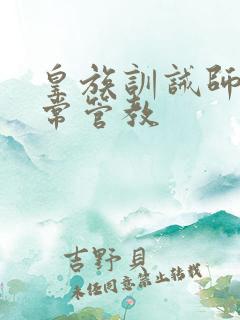 皇族訓誡師
常管教
吉野貝
未经同意禁止转载